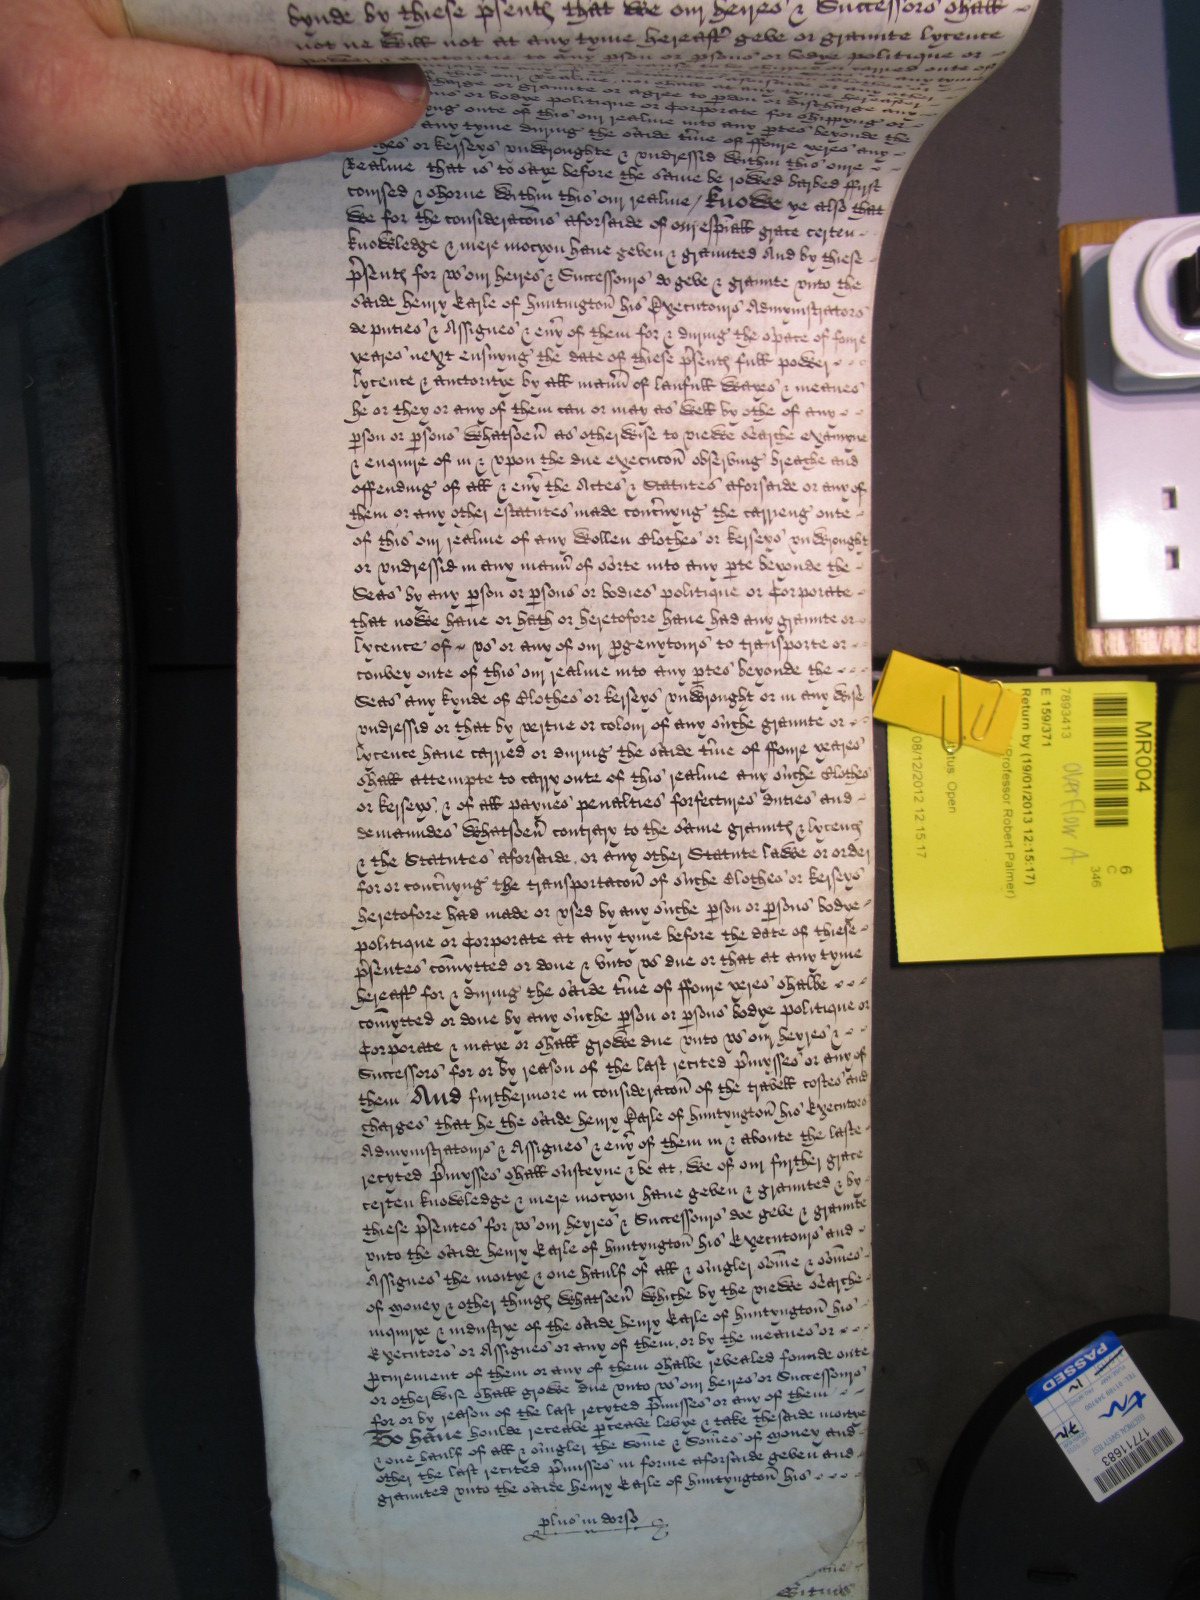 bynde by thiese pñsentꝭ that we our heires & Successors shall
not ne will not at any tyme hereaftʳ geve or graunte lycence
power & auctoritie to any pson or psons or bodye politique or
or graunte or agree to pdon or discharge any
or bodye politique or Corporate for shippyng or
oute of this our realme into any ptes beyonde the
any tyme during the saide t̃me of ffoure yeres any
or kerseys unwroughte & undressid within this oure
Realme that is to saye before the same be rowed barbed ffirst
coursed & shorne within this our realme / Knowe ye also that
we for the consideracõns aforsaide of our esp̃iall grace certen
knowledge & mere mocyon have geven & graunted And by thiese
pñsentꝭ for us our heires & Successours do geve & graunte unto the
saide henry Earle of huntingtoñ his Executours Admynistrators
deputies & Assignes & eṽy of them for & during the space of foure
yeares next ensuyng the date of these pñsentꝭ full power
lycence & auctoritye by all man̄ of laufull wayes & meanes
he or they or any of them can or may as well by othe of any
pson or psons whatsoev̄ as otherwise to viewe searche examyne
& enquire of in & upon the due execucoñ observing breache and
offending of all & eṽy the Actes & Statutes aforsaide or any of
them or any other estatutes made conc̄nyng the carreng oute
of this our realme of any wollen Clothes or kerseys unwrought
or undressid in any man̄ of sorte into any pte beyonde the
Seas by any pson or psons or bodies politique or Corporate
that nowe have or hath or heretofore have had any graunte or
lycence of us or any of our pgenytours to transporte or
convey oute of this our realme into any ptes beyonde the
Seas any kynde of Clothes or kerseys unwrought or in any wise
undressid or that by vertue or colour of any suche graunte or
lycence have carried or during the saide t̃me of ffoure yeares
shall attempte to carry oute of this realme any suche Clothes
or kerseys, & of all paynes penalties forfectures duties and
demaundes whatsoev̄ contrary to the same grauntꝭ & lycencꝭ
& the Statutes aforsaide, or any other Statute lawe or order
for or conc̄nyng the transportacoñ of suche Clothes or kerseys
heretofore had made or used by any suche pson or psons bodye
politique or Corporate at any tyme before the date of thiese
pñsentes com̃ytted or done & unto us due or that at any tyme
hereaftʳ for & during the saide t̃me of ffoure yeres shalbe
com̃ytted or done by any suche pson or psons bodye politique or
Corporate & maye or shall growe due unto us our heyres &
Successors for or by reason of the last recited pm̃ysses or any of
them And furthermore in consideracoñ of the travell costes and
charges that he the saide henry Earle of huntyngtoñ his Executors
Admynistratours & Assignes & eṽy of them in & aboute the laste
recyted pm̃ysses shall susteyne & be at, we of our further grace
certen knowledge & mere mocyon have geven & graunted & by
thiese pñsentes for us our heyres & Successours doe geve & graunte
unto the saide henry Earle of huntyngtoñ his Executours and
Assignes the moitye & one haulf of all & singler som̃e & som̃es
of money & other thingꝭ whatsoev̄ whiche by the viewe searche
inquirie & industrye of the saide henry Earle of huntyngtoñ his
Executors or Assignes or any of them, or by the meanes or
pcurement of them or any of them shalbe revealed founde oute
or otherwise shall growe due unto us our heires or Successours
for or by reason of the last recyted pm̃isses or any of them
To have houlde receave pceave levye & take the saide moitye
& one haulf of all & singler the som̃e & som̃es of money and
other the last recited pm̃isses in forme aforsaide geven and
graunted unto the saide henry Earle of huntyngtoñ his
plus in dorso
MR004
6
C
346
7893413
overflow A
E 159/371
Return by (19/01/2013 12:15:17)
Professor Robert Palmer)
tus: Open
08/12/2012 12:15:17
PASSED
17711683